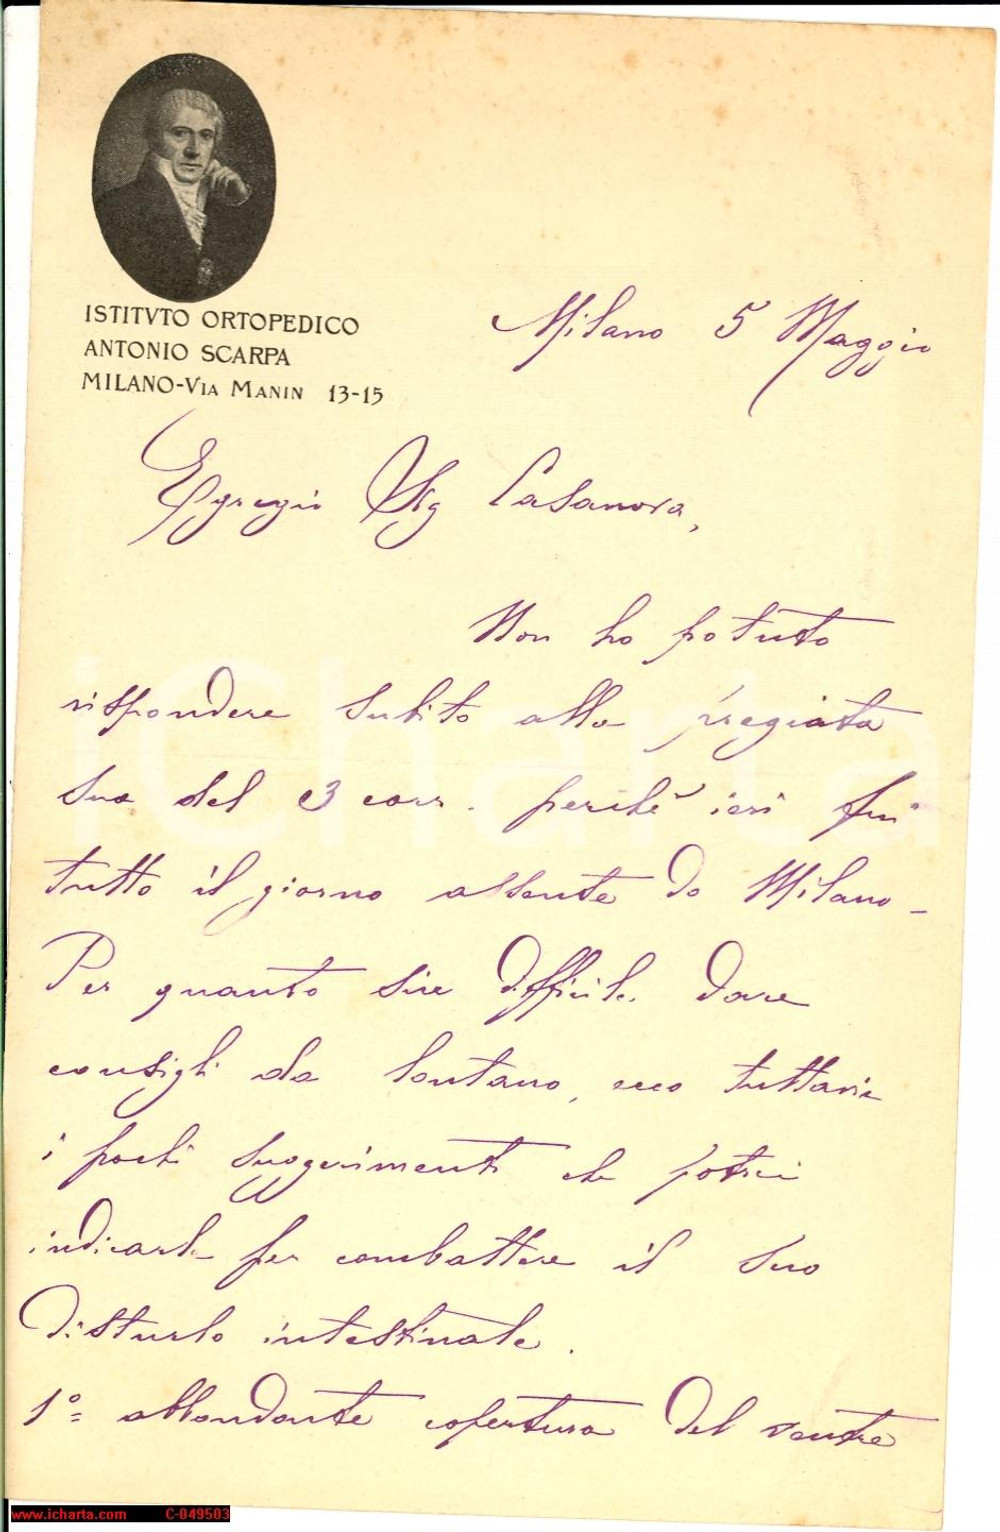 ISTITVTO ORTOPEDICO
ANTONIO SCARPA
MILANO-VIA MANIN 13-15
Milano 5 Maggio
Egregio Sig Casanova,
Non ho potuto
rispondere subito alla pregiata
sua del 3 corr. perchè ieri fui
tutto il giorno assente da Milano-
Per quanto sia difficile dare
consigli da lontano, ecco tuttavia
i pochi suggerimenti che potrei
indicarle per combattere il suo
disturbo intestinale.
1º= abbondante copertura del ventre
iCharta
www.icharta.com C-049503